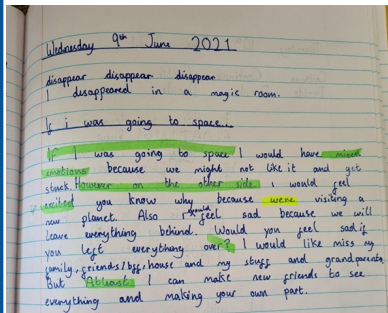 Wednesday 9th June 2021
disappear disappear disappear
I disappeared in a magic room.
If i was going to space...
If I was going to space I would have mixed
emotions because we might not like it and get
stuck. However on the other side, i would feel
excited you know why because were visiting a
new planet. Also I would feel sad because we will
leave everything behind. Would you feel sad if
you left everything over? I would like miss my
family, friends/bff, house and my stuff and grandparents.
But Atleast I can make new friends to see
everything and making your own part.